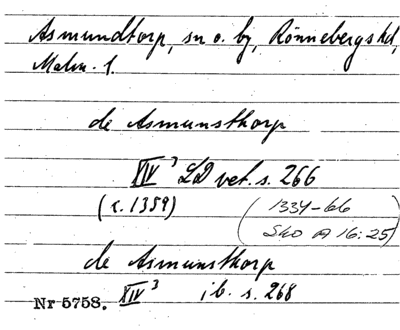 Asmundtorp, sn o. by, Rönnebergs hd,
Malm. l.
de Asmunsthorp
XIV³ LD vet. s. 266
(c. 1359) (1334-66
Sko A 16:25)
de Asmunsthorp
Nr 5758. XIV³ ib. s. 268